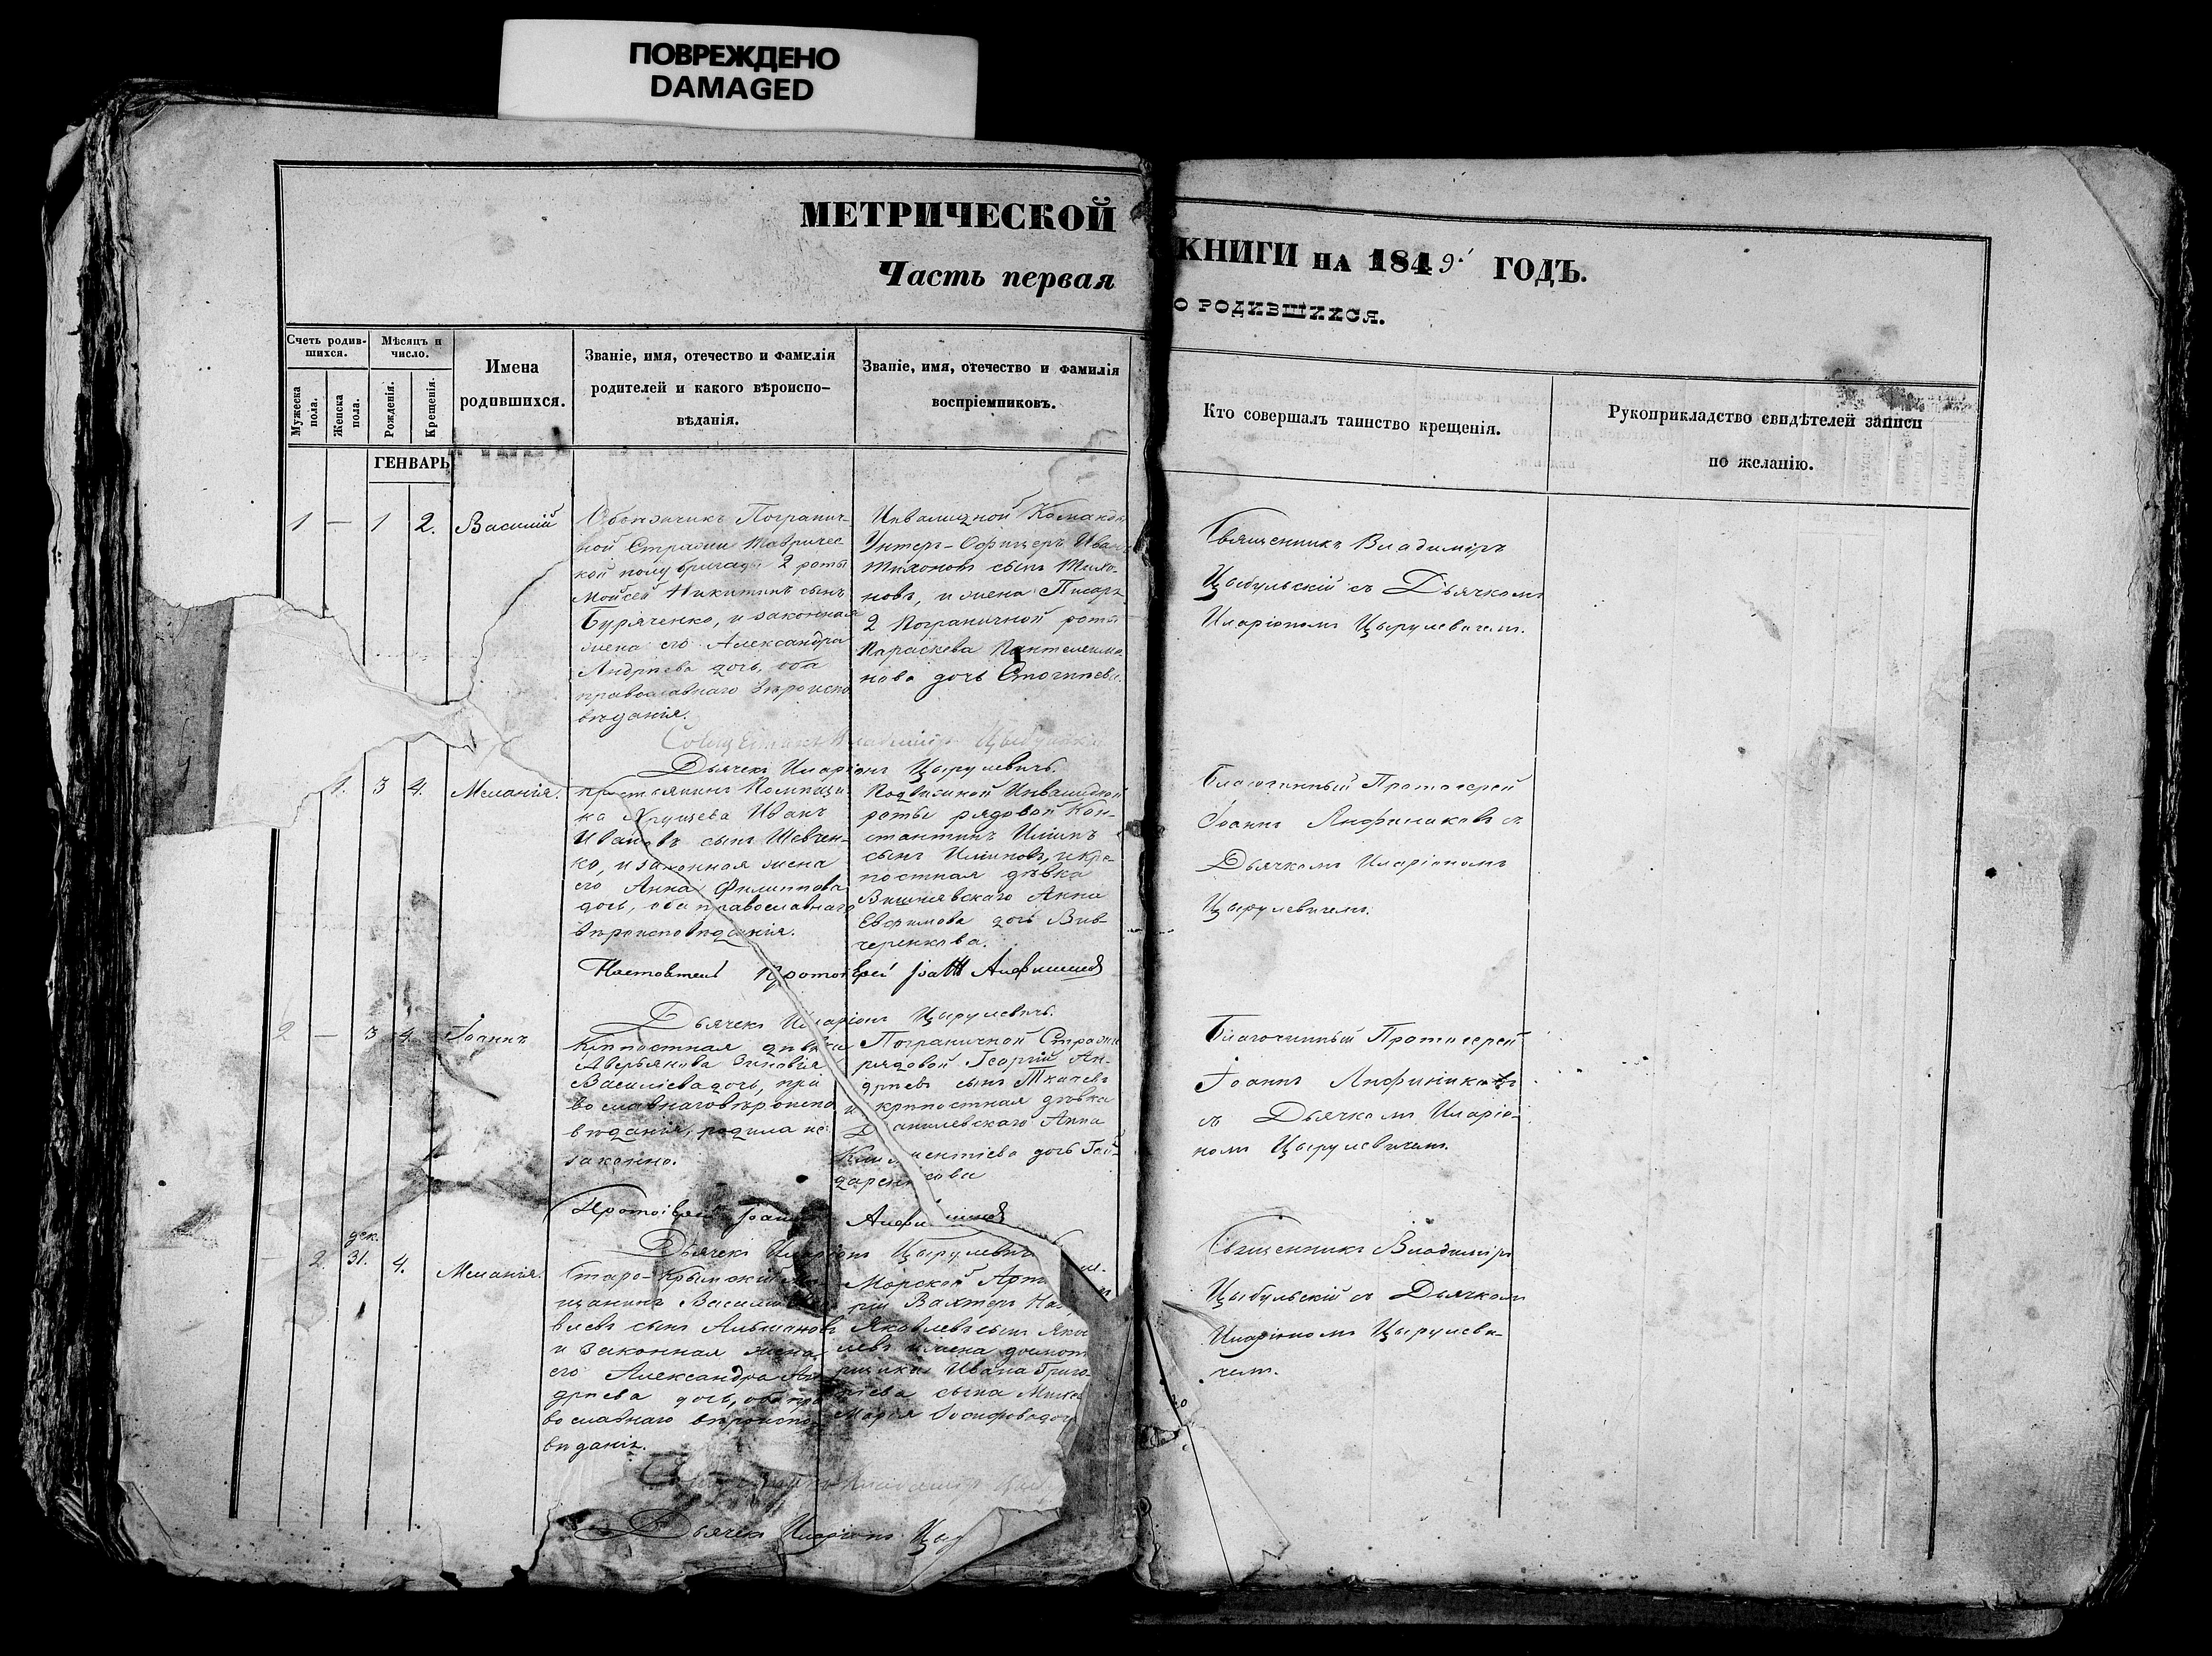 ПОВРЕЖДЕНО
DAMAGED
МЕТРИЧЕСКОЙ КНИГИ НА 1849 ГОДЪ.
Часть первая О РОДИВШИХСЯ.
Счетъ родив-
шихся.
Мужеска пола.
Женска пола.
Мѣсяцъ и
число.
Рожденія.
Крещенія.
Имена
родившихся.
Званіе, имя, отечество и фамилія
родителей и какого вѣроиспо-
вѣданія.
Званіе, имя, отечество и фамилія
воспріемниковъ.
Кто совершалъ таинство крещенія.
Рукоприкладство свидѣтелей записи
по желанію.
ГЕНВАРЬ
1 — 1 2. Василій
Объѣзчикъ Погранич-
ной Стражи Тавричес
кой полубригады 2 роты
Мойсей Никитинъ сынъ
Буряченко, и законная
жена его Александра
Андрѣева дочь, оба
православнаго вѣроиспо
вѣданія.
Инвалидной Команды
Унтеръ-Офицеръ Иванъ
Тихоновъ сынъ Тихо-
новъ, и жена Писаря
2 Пограничной роты
Параскева Пантелеимо
нова дочь
Священникъ Владиміръ
Цыбульскій съ Дьячкомъ
Иларіономъ Цырулевичемъ.
Священникъ Владиміръ Цыбульскій
Дьячекъ Иларіонъ Цырулевичъ.
1. 3 4. Меланія.
крестьянинъ Помѣщи
ка Иванъ
Ивановъ сынъ Шевчен-
ко, и законная жена
его Анна Филиппова
дочь, оба православнаго
вѣроисповѣданія.
Подвижной Инвалидной
роты рядовой Кон-
стантинъ
сынъ и крѣ
постная дѣвка
Вишневскаго Анна
Евфимова дочь Вив-
черенкова.
Благочинный Протоіерей
Іоаннъ Анфиниковъ съ
Дьячкомъ Иларіономъ
Цырулевичемъ.
Настоятель Протоіерей Іоаннъ
Дьячекъ Иларіонъ Цырулевичъ.
2 — 3 4. Іоаннъ
Крѣпостная дѣвка
Аверьянова Зиновія
Василіева дочь, пра
вославнаго вѣроиспо
вѣданія, родила не-
законно.
Пограничной Стражи
рядовой Георгій Ан-
дрѣевъ сынъ Ткачевъ
и крѣпостная дѣвка
Данилевскаго Анна
Климентіева дочь
Благочинный Протоіерей
Іоаннъ Анфиниковъ
съ Дьячкомъ Иларіо-
номъ Цырулевичемъ.
Протоіерей Іоаннъ
Дьячекъ Иларіонъ Цырулевичъ
— 2. дек. 31. 4. Меланія.
Старо-Крымскій мѣ
щанинъ Василій
сынъ
и законная жена
его Александра Ан
дрѣева дочь, оба пра
вославнаго вѣроиспо
вѣданія.
Морской Арт
ріи Вахтеръ
Яковлевъ сынъ Яко
левъ и жена
Ивана Григо
ріева сына
Марія Іосифова доч
Священникъ Владиміръ
Цыбульскій съ Дьячкомъ
Иларіономъ Цырулеви-
чемъ.
Дьячекъ Иларіонъ Цыр